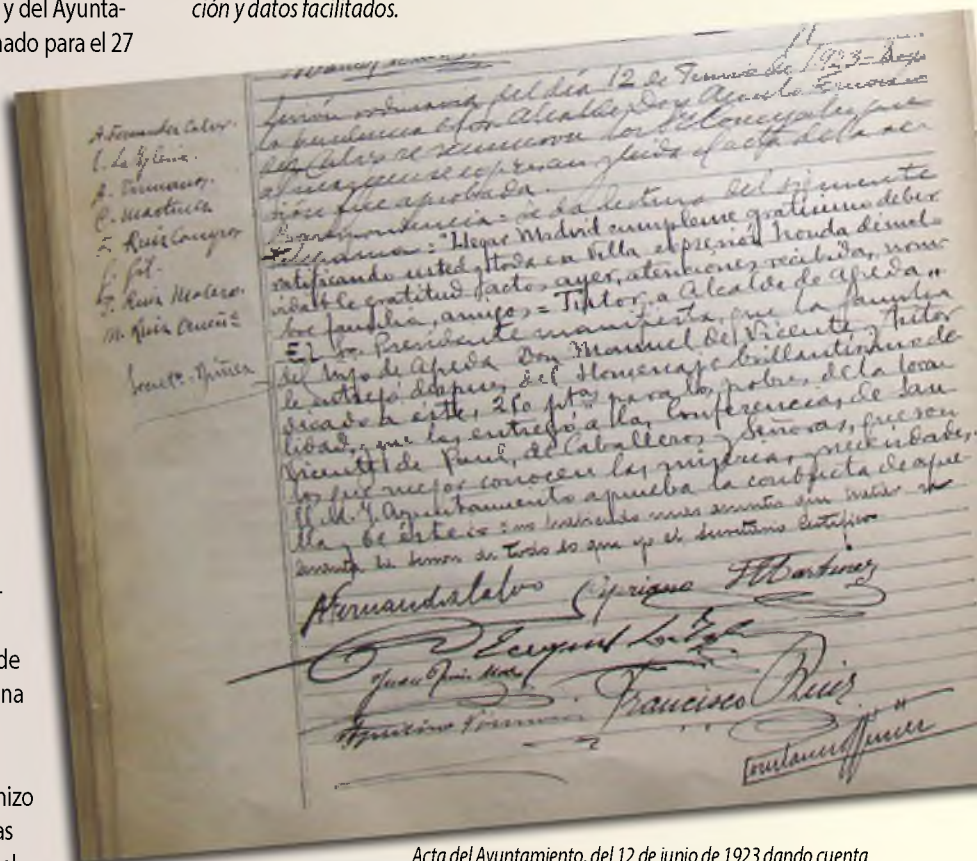 y del Ayunta-
ado para el 27
ción y datos facilitados.
A. Fernandez Calvo.
C. Martinez
E. Ruiz
F. Gil.
J. Ruiz Malero.
M. Ruiz
Secret.º Núñez
Sesión ordinaria del día 12 de Junio de 1923 = Bajo
la presidencia del Sr. Alcalde Don
Calvo se reunieron los Sres. Concejales que
al margen se expresan y leida el acta de la se-
sión fue aprobada.
Correspondencia = Se da lectura del siguiente
"Llegar Madrid cumpleme gratisimo deber
ratificando usted y toda esa Villa expresión honda
gratitud actos ayer, atenciones recibidas, nom-
bre familia, amigos = Tutor, a Alcalde de Agreda"
El Sr. Presidente manifiesta, que la familia
del hijo de Agreda Don Manuel de Vicente Tutor
le entregó despues del Homenaje brillantisimo de-
dicado a éste, 250 ptas para los pobres de la loca-
lidad, que las entregó a las Conferencias de San
Vicente de Paul, de Caballeros y Señoras, que son
los que mejor conocen las miserias y necesidades.
El M. Y. Ayuntamiento aprueba la conducta de aque-
lla y de éste = no habiendo mas asuntos que tratar se
levanta la sesion de todo lo que yo el Secretario Certifico
A Fernandez Calvo Cipriano Martinez
Ezequiel
Juan Ruiz Francisco Ruiz
Núñez
de
na
hizo
as
Acta del Ayuntamiento, del 12 de junio de 1923 dando cuenta